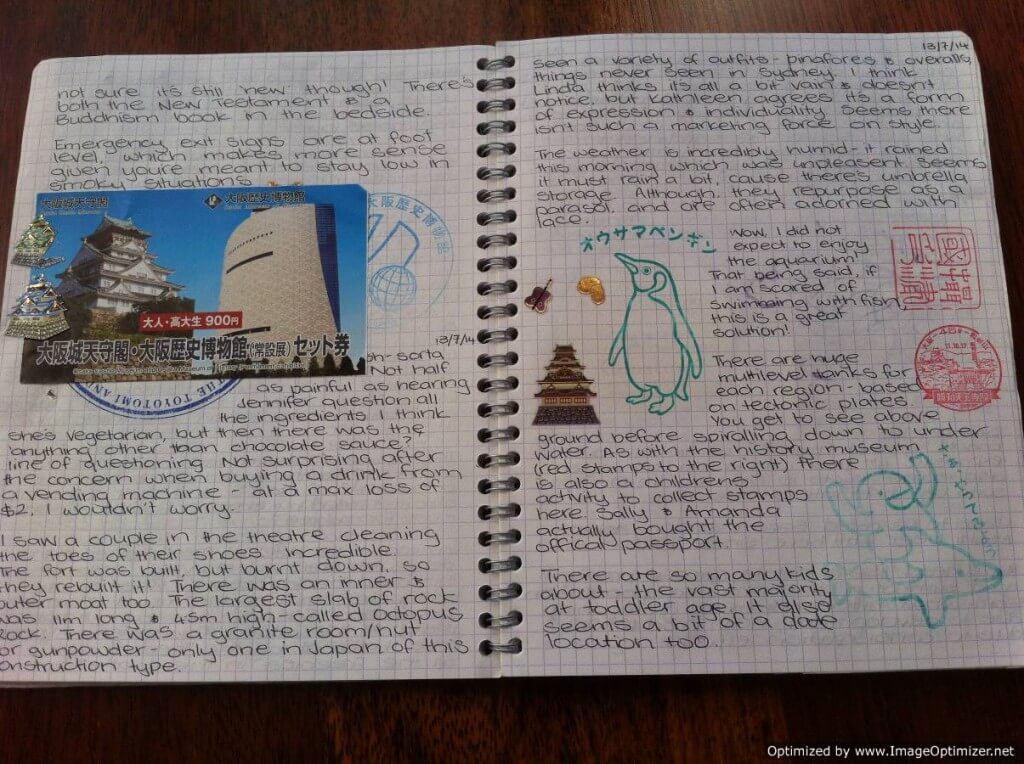 not sure its still 'new' though! There's
both the New Testament & a
Buddhism book in the bedside.
Emergency exit signs are at foot
level, which makes more sense
given you're meant to stay low in
smoky situations
大阪城天守閣
大阪歴史博物館
大人・高大生 900円
大阪城天守閣・大阪歴史博物館(常設展) セット券
大阪歴史博物館
THE TOYOTOMI
13/7/14
sh-sorta
Not half
as painful as hearing
Jennifer question all
the ingredients I think
she's vegetarian, but then there was the
'anything other than chocolate sauce?'
line of questioning. Not surprising after
the concern when buying a drink from
a vending machine - at a max loss of
$2, I wouldn't worry.
I saw a couple in the theatre cleaning
the toes of their shoes incredible.
The fort was built, but burnt down, so
they rebuilt it! There was an inner &
outer moat too. The largest slab of rock
was 11m long & 45m high-called octopus
Rock. There was a granite room/hut
for gunpowder - only one in Japan of this
construction type.
13/7/14
seen a variety of outfits - pinafores & overalls,
things never seen in Sydney. I think
Linda thinks its all a bit vain & doesnt
notice, but Kathleen agrees its a form
of expression & individuality. Seems there
isnt such a marketing force on style.
The weather is incredibly humid - it rained
this morning which was unpleasent. Seems
it must rain a lot, cause there's umbrella
storage. Although, they repurpose as a
parasol, and are often adorned with
lace.
オウサマペンギン
Wow, I did not
expect to enjoy
the aquarium!
That being said, if
I am scared of
swimming with fish,
this is a great
solution!
There are huge
multilevel tanks for
each region - based
on tectonic plates
You get to see above
ground before spiralling down to under
water. As with the history museum
(red stamps to the right) there
is also a childrens
activity to collect stamps
here. Sally & Amanda
actually bought the
offical passport.
There are so many kids
about - the vast majority
at toddler age. It also
seems a bit of a date
location too.
Optimized by www.ImageOptimizer.net